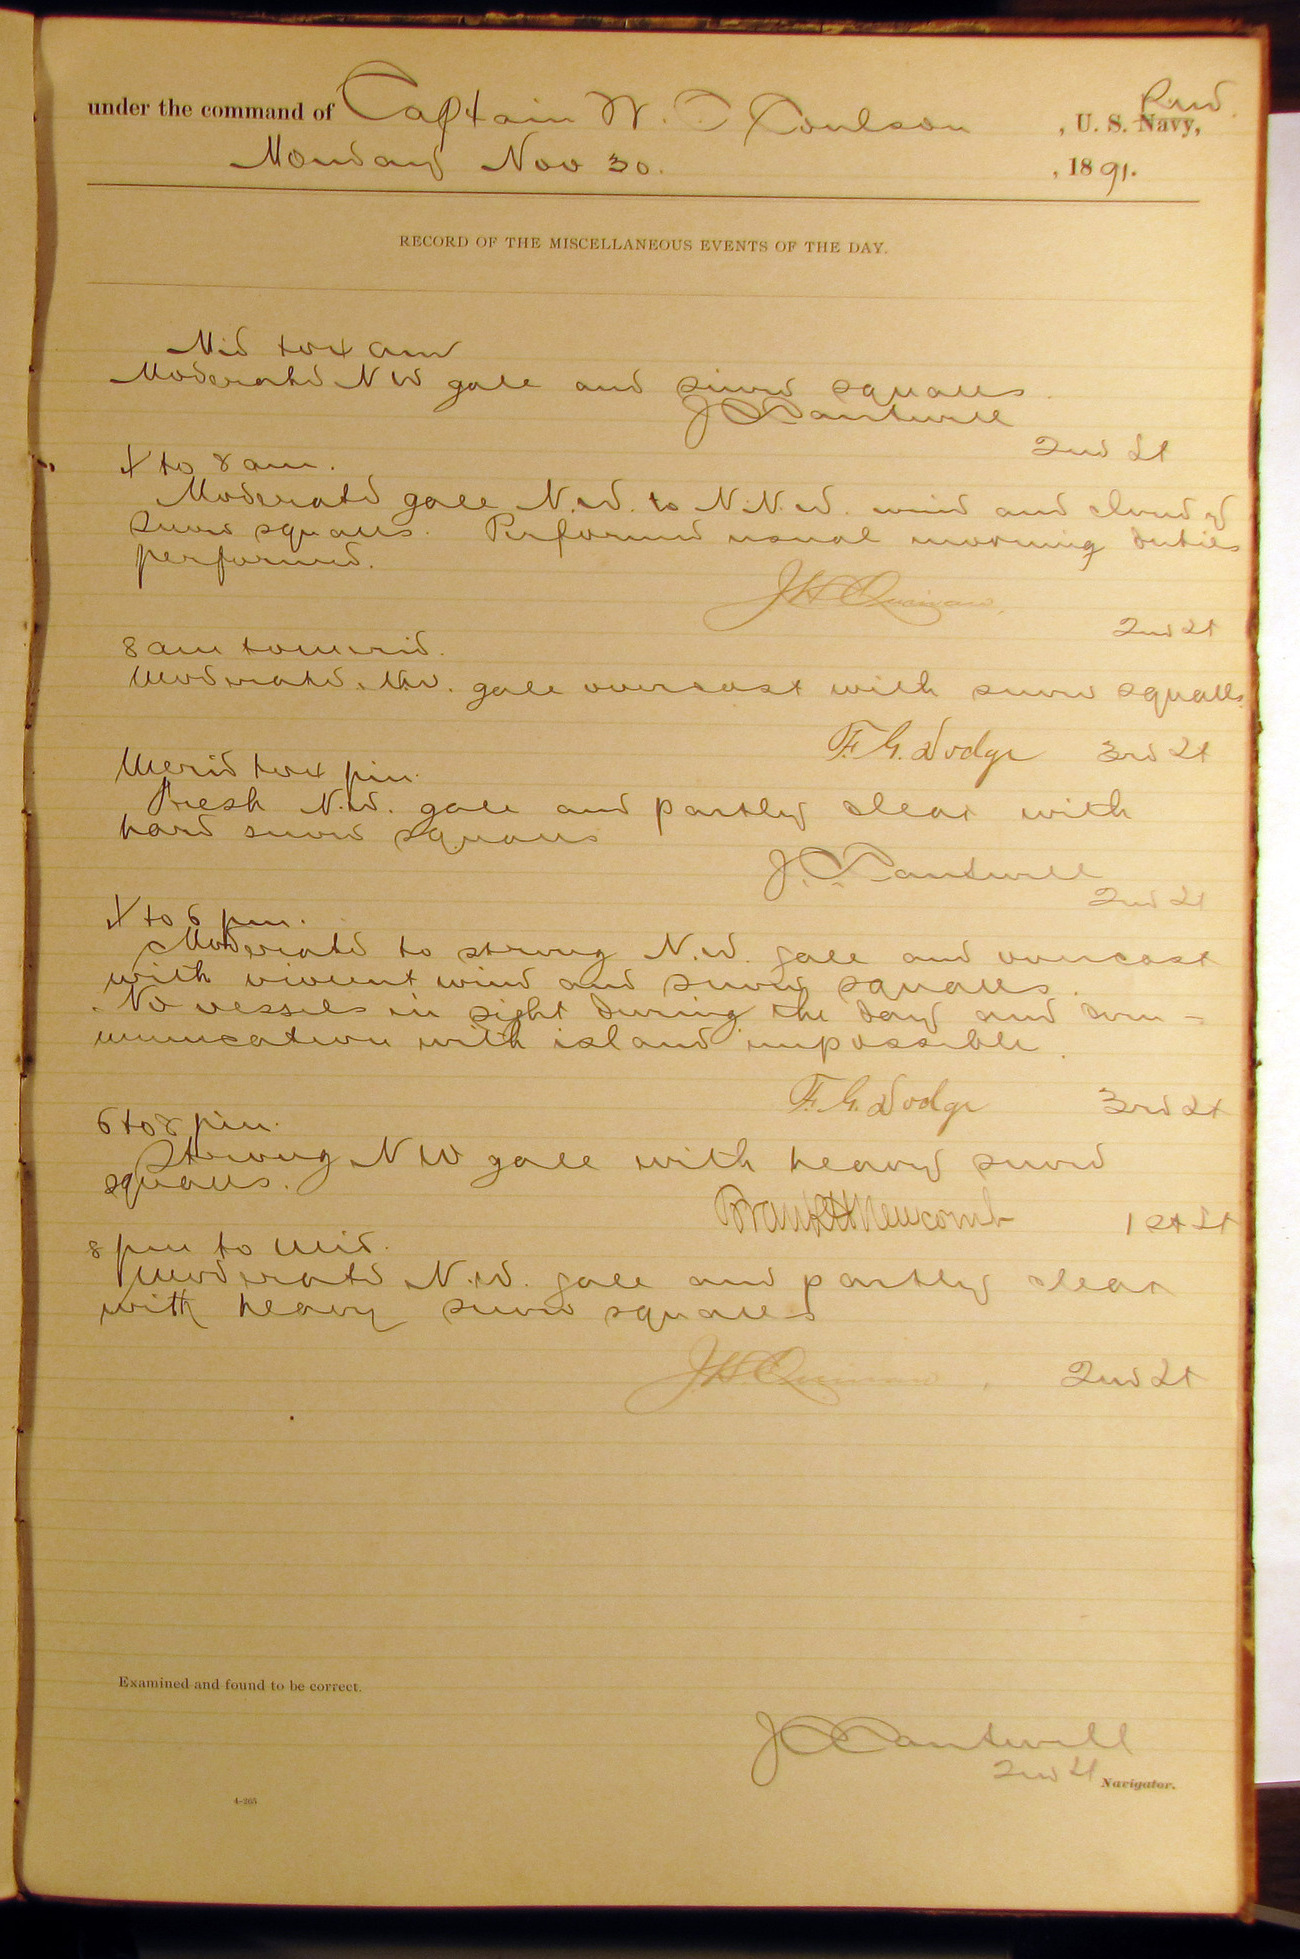 under the command of Captain W. C. Coulson , U. S. Navy, Rev.
Monday Nov 30. , 1891.
RECORD OF THE MISCELLANEOUS EVENTS OF THE DAY.
Mid to 4 am
Moderate NW gale and snow squalls.
J C Cantwell
2nd Lt
4 to 8 am.
Moderate gale N.W. to N.N.W. wind and
snow squalls. Performed usual morning duties
performed.
J H Quinan.
2nd Lt
8 am to merid.
Moderate N.W. gale overcast with snow squalls.
F. G. Dodge 3rd Lt
Merid to 4 pm.
Fresh N.W. gale and partly clear with
hard snow squalls
J. C. Cantwell
2nd Lt
4 to 6 pm.
Moderate to strong N.W. gale and overcast
with violent wind and snow squalls.
No vessels in sight during the day and com-
munication with island impossible.
F. G. Dodge 3rd Lt
6 to 8 pm.
Strong NW gale with heavy snow
squalls.
Frank H Newcomb 1st Lt
8 pm to Mid.
Moderate N.W. gale and partly clear
with heavy snow squalls
J H Quinan, 2nd Lt
Examined and found to be correct.
J C Cantwell
2nd Lt Navigator.
4-265